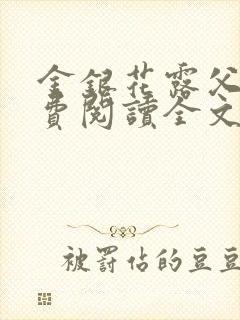 金銀花露父
費閱讀全文
被罰佔的豆豆